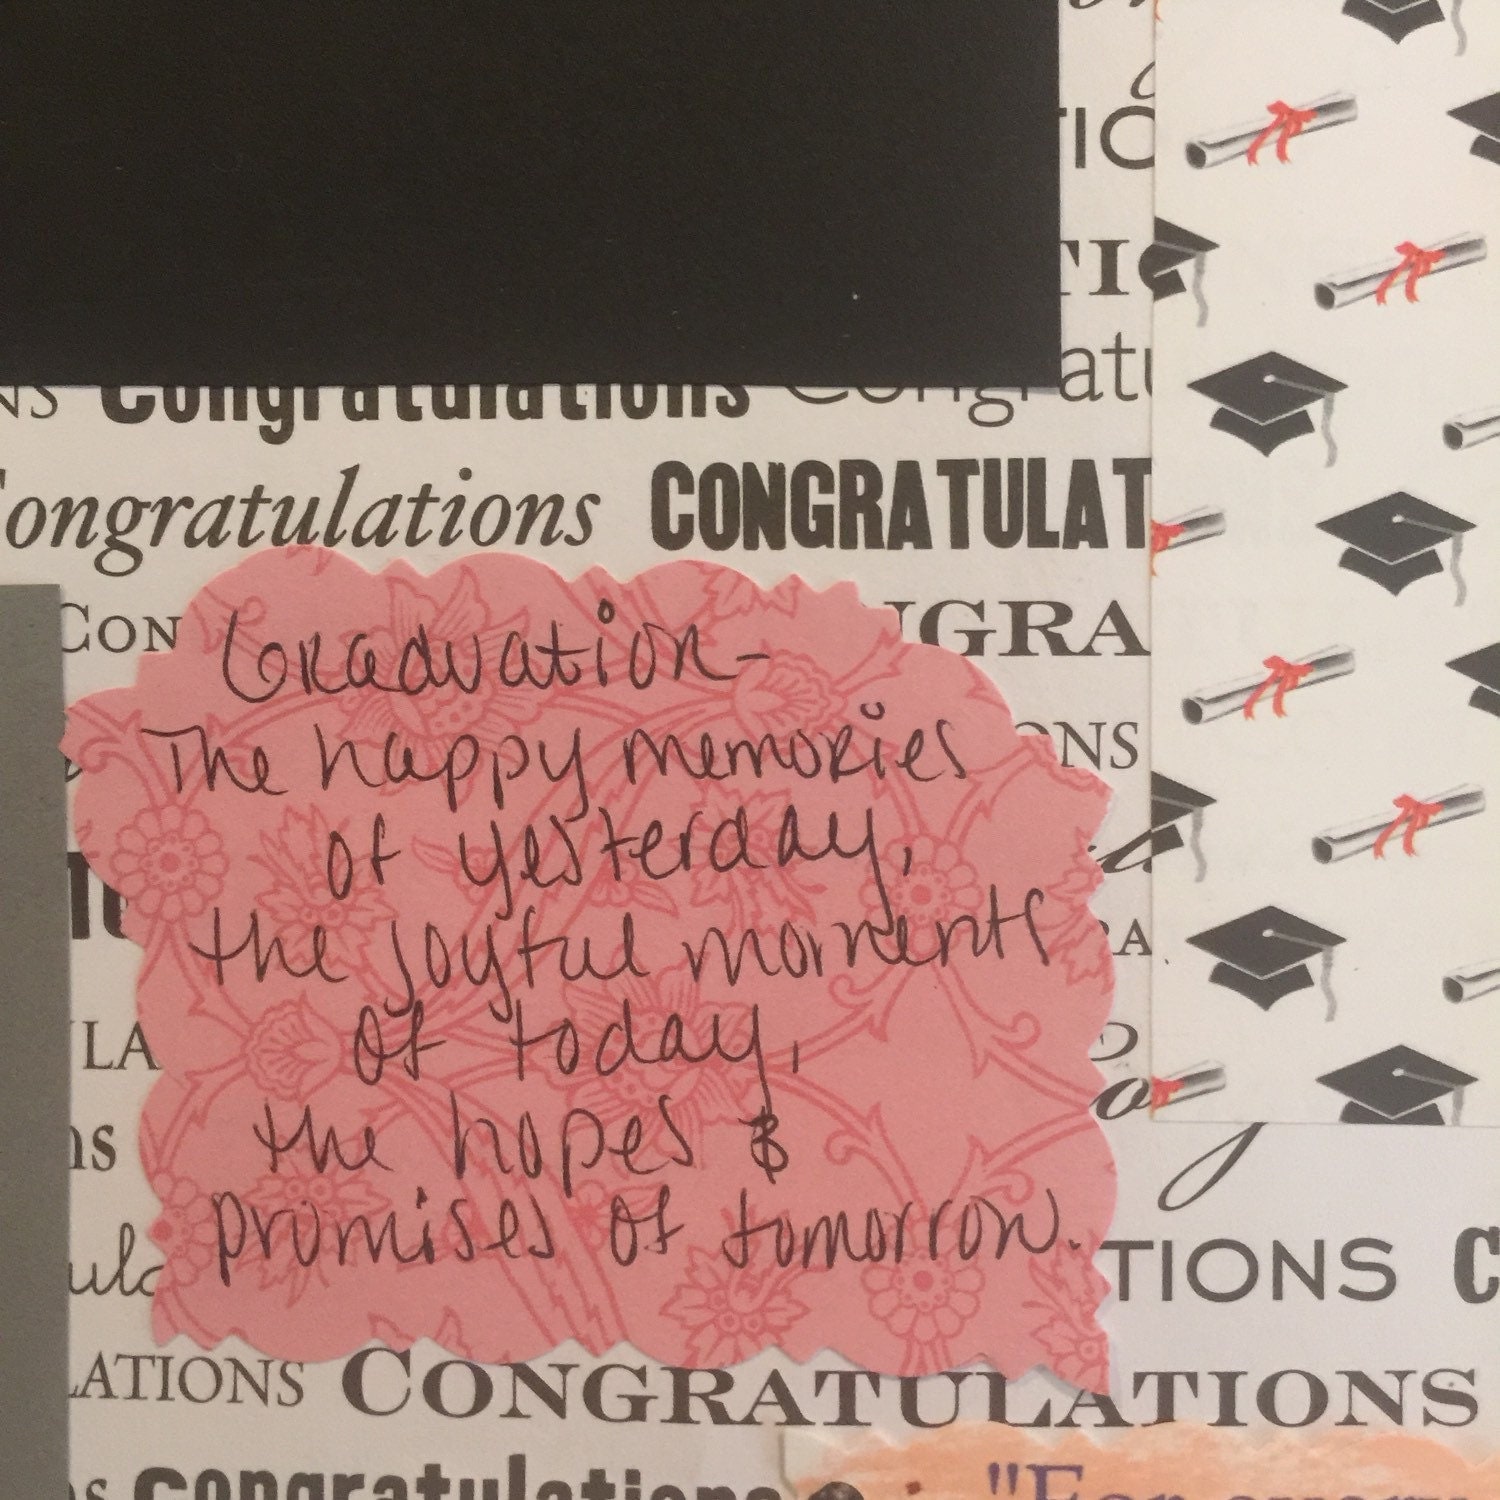 TIO
TIO
NS Congratulations Congratu
Congratulations CONGRATULAT
CON
NGRA
Graduation-
The happy memories
of yesterday,
the joyful moments
of today,
the hopes &
promises of tomorrow.
ONS
RA
LA
ns
ula
TIONS C
LATIONS CONGRATULATIONS
s congratulations
"For every